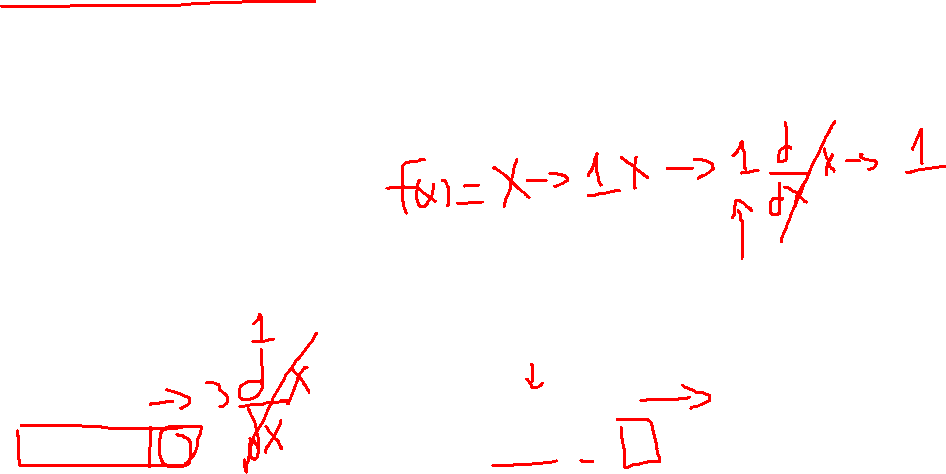 f(x) = x → 1x → 1 d/dx x → 1
1
→ 3 d/dx x